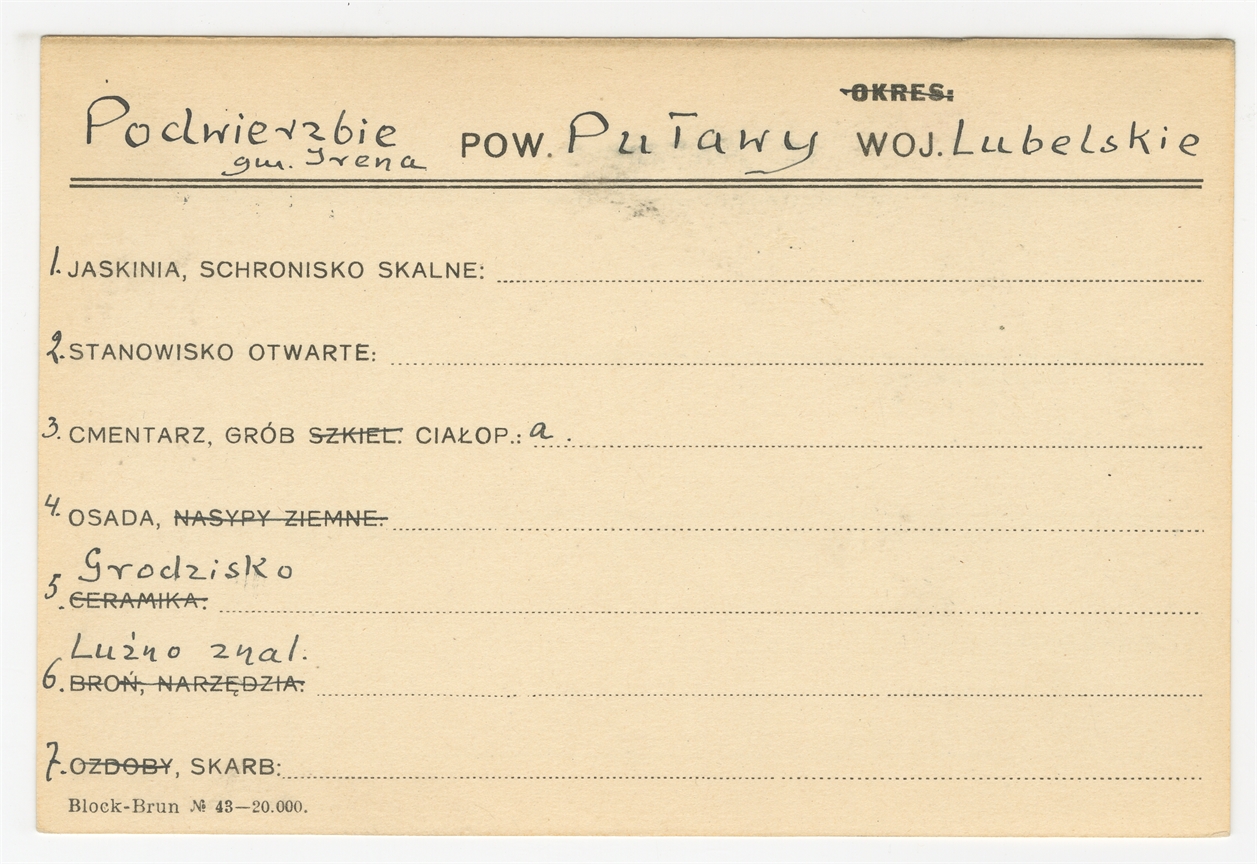 OKRES:
Podwierzbie POW. Puławy WOJ. Lubelskie
gm. Irena
1. JASKINIA, SCHRONISKO SKALNE:
2. STANOWISKO OTWARTE:
3. CMENTARZ, GRÓB SZKIEL. CIAŁOP.: a.
4. OSADA, NASYPY ZIEMNE:
Grodzisko
5. CERAMIKA:
Luźno znal.
6. BROŃ, NARZĘDZIA:
7. OZDOBY, SKARB:
Block-Brun № 43—20.000.